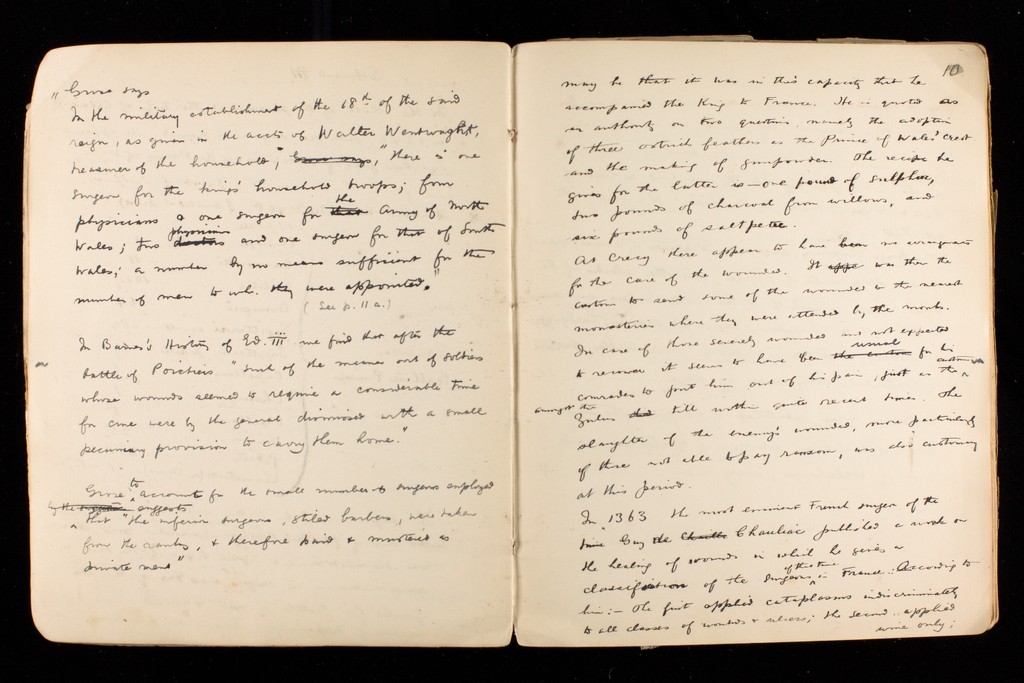 " Grose says
In the military establishment of the 18th of the said
reign, as given in the accts of Walter Wentwaght,
treasurer of the household", Grose says, "there is one
surgeon for the king's household troops; four
physicians & one surgeon for that the Army of North
Wales; two doctors physicians and one surgeon for that of South
Wales; a number by no means sufficient for the
number of men to wh. they were appointed."
(See p. 11 a.)
In Barnes's History of Ed. III we find that after the
battle of Poictiers "such of the meaner sort of soldiers
whose wounds seemed to require a considerable time
for cure were by the general dismissed with a small
pecuniary provision to carry them home."
Grose to account for the small number of surgeons employed
by the suggests
that "the inferior surgeons, stiled barbers, were taken
from the ranks, & therefore paid & mustered as
private men"
10
may be that it was in this capacity that he
accompanied the King to France. He is quoted as
an authority on two questions, namely the adoption
of three ostrich feathers as the Prince of Wales' crest
and the making of gunpowder. The recipe he
gives for the latter is — one pound of sulphur,
two pounds of charcoal from willows, and
six pounds of saltpetre.
At Crecy there appear to have been no arrangements
for the care of the wounded. It appe was then the
custom to send some of the wounded to the nearest
monasteries where they were attended by the monks.
In case of those severely wounded and not expected
to recover it seems to have been the custom usual for his
comrades to put him out of his pain, just as the custom was
amongst the
Zulus till within quite recent times. The
slaughter of the enemy's wounded, more particularly
of those not able to pay ransom, was also customary
at this period.
In 1363 the most eminent French surgeon of the
time Guy de Chaulic Chauliac published a work on
the healing of wounds in which he gives a
classification of the surgeons of the time in France. According to
him:— The first applied cataplasms indiscriminately
to all classes of wounds & ulcers; the second applied
wine only;